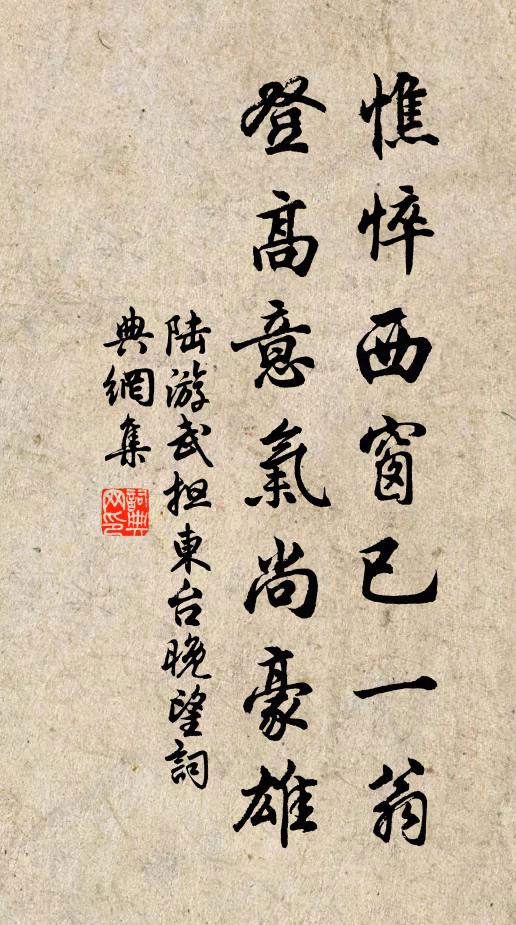 憔悴西窗已一翁
登高意氣尚豪雄
陆游武担東台晚望詞
典網集
詞典网印